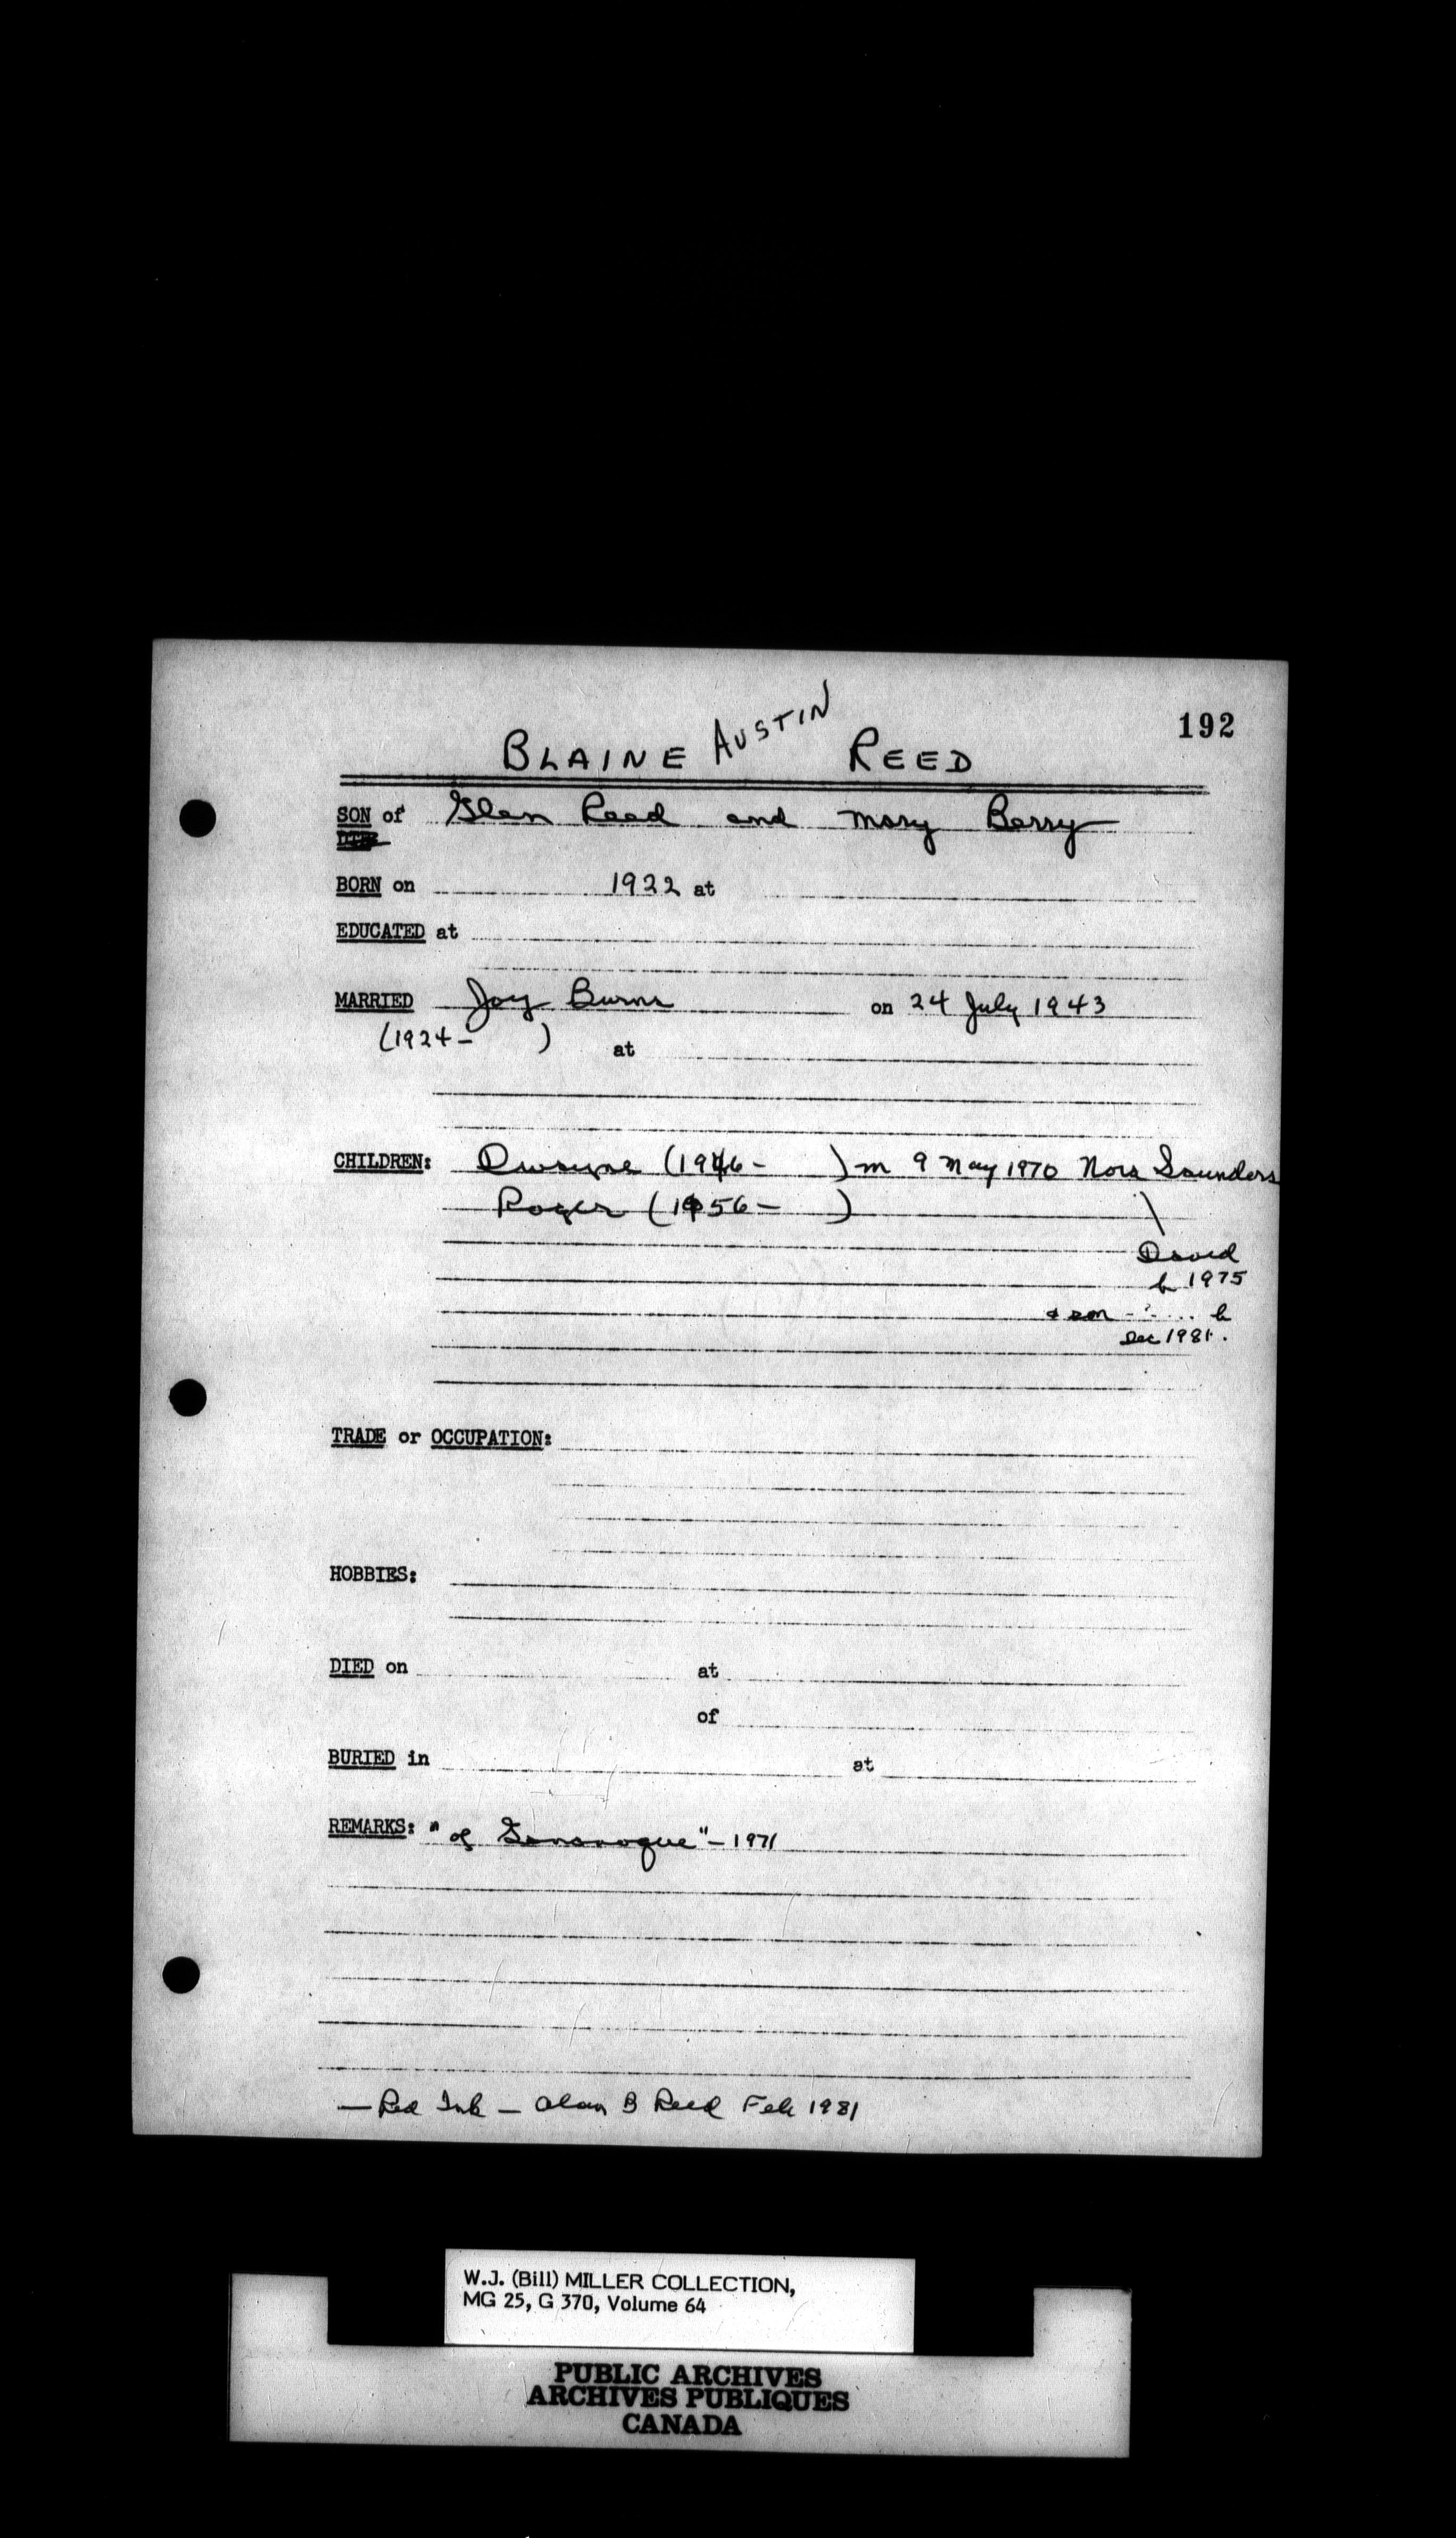 192
BLAINE AUSTIN REED
SON of Glen Reed and Mary Berry
BORN on 1922 at
EDUCATED at
MARRIED Joy Burns on 24 July 1943
(1924- ) at
CHILDREN: Dwayne (1946- ) m 9 May 1970 Nora Saunders
Roger (1956- )
David
b 1975
& son -?- ... b
Dec 1981.
TRADE or OCCUPATION:
HOBBIES:
DIED on at
of
BURIED in at
REMARKS: "of Gananoque" - 1971
— Red Ink — Alan B Reed Feb 1981
W.J. (Bill) MILLER COLLECTION,
MG 25, G 370, Volume 64
PUBLIC ARCHIVES
ARCHIVES PUBLIQUES
CANADA